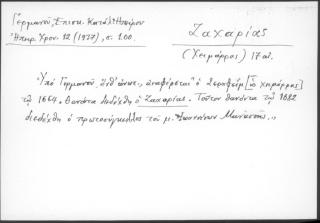 Γερμανοῦ, Ἐπισκ. Κατάλ. Ἠπείρου
Ἠπειρ. Χρον. 12 (1937), σ. 100.
Ζαχαρίας
(Χειμάρρας) 17 αἰ.
"Ὑπό Γερμανοῦ, ἀνθ' ὧντινος, ἀναφέρεται ὁ Σεραφείμ [ὁ Χειμάρρας]
τῷ 1664. Θανόντα διεδέχθη ὁ Ζαχαρίας. Τοῦτον θανόντα τῷ 1682
διεδέχθη ὁ πρωτοσύγκελλος τοῦ μ. Ἰωαννίνων Μανασσῆς.,,